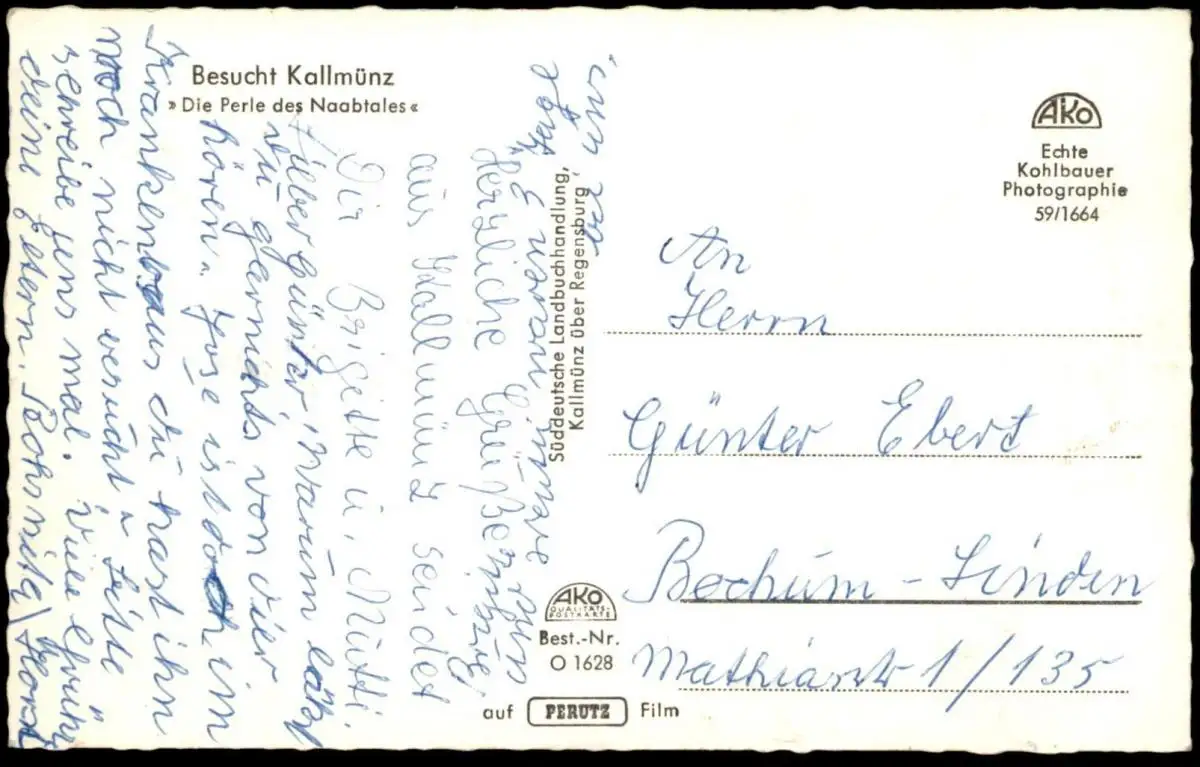 Besucht Kallmünz
» Die Perle des Naabtales «
AKO
Echte
Kohlbauer
Photographie
59/1664
Süddeutsche Landbuchhandlung,
Kallmünz über Regensburg
AKO
QUALITÄTS-
POSTKARTE
Best.-Nr.
O 1628
auf PERUTZ Film
An
Herrn
Günter Ebert
Bochum - Linden
Mathiastr 1/135
Herzliche Grüße
aus Kallmünz sendet
Dir Brigitte u. Mutti.
Lieber Günter, Warum läßt
Du garnichts von dir
hören. Jose ist doch im
Krankenhaus du hast ihn
noch nicht besucht. Bitte
schreibe uns mal. Viele Grüße
deine Eltern.